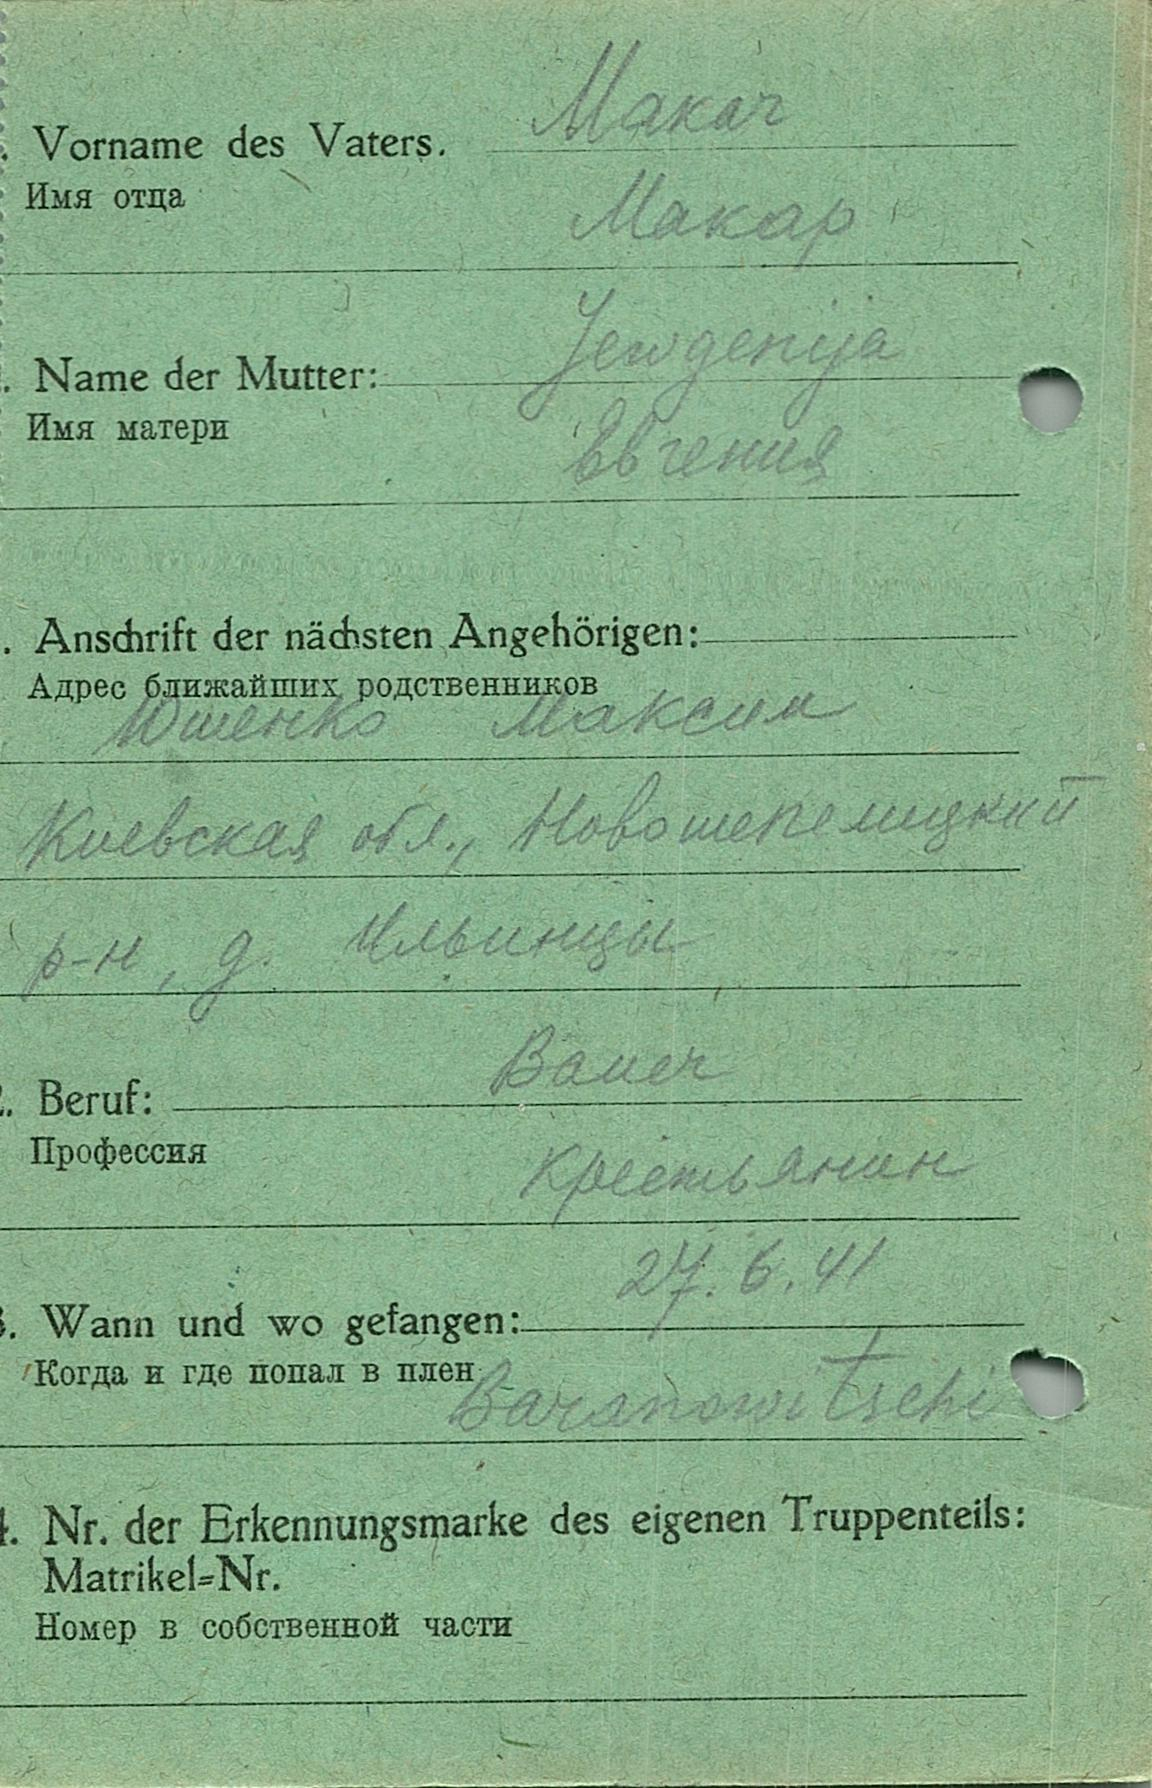 . Vorname des Vaters. Makar
Имя отца
Макар
. Name der Mutter: Jewgenija
Имя матери
Евгения
. Anschrift der nächsten Angehörigen:
Адрес ближайших родственников
Юшенко Максим
Киевская обл., Новошепелицкий
р-н, д. Ильинцы
2. Beruf: Bauer
Профессия
Крестьянин
27.6.41
3. Wann und wo gefangen:
Когда и где попал в плен
Baranowitschi
4. Nr. der Erkennungsmarke des eigenen Truppenteils:
Matrikel-Nr.
Номер в собственной части